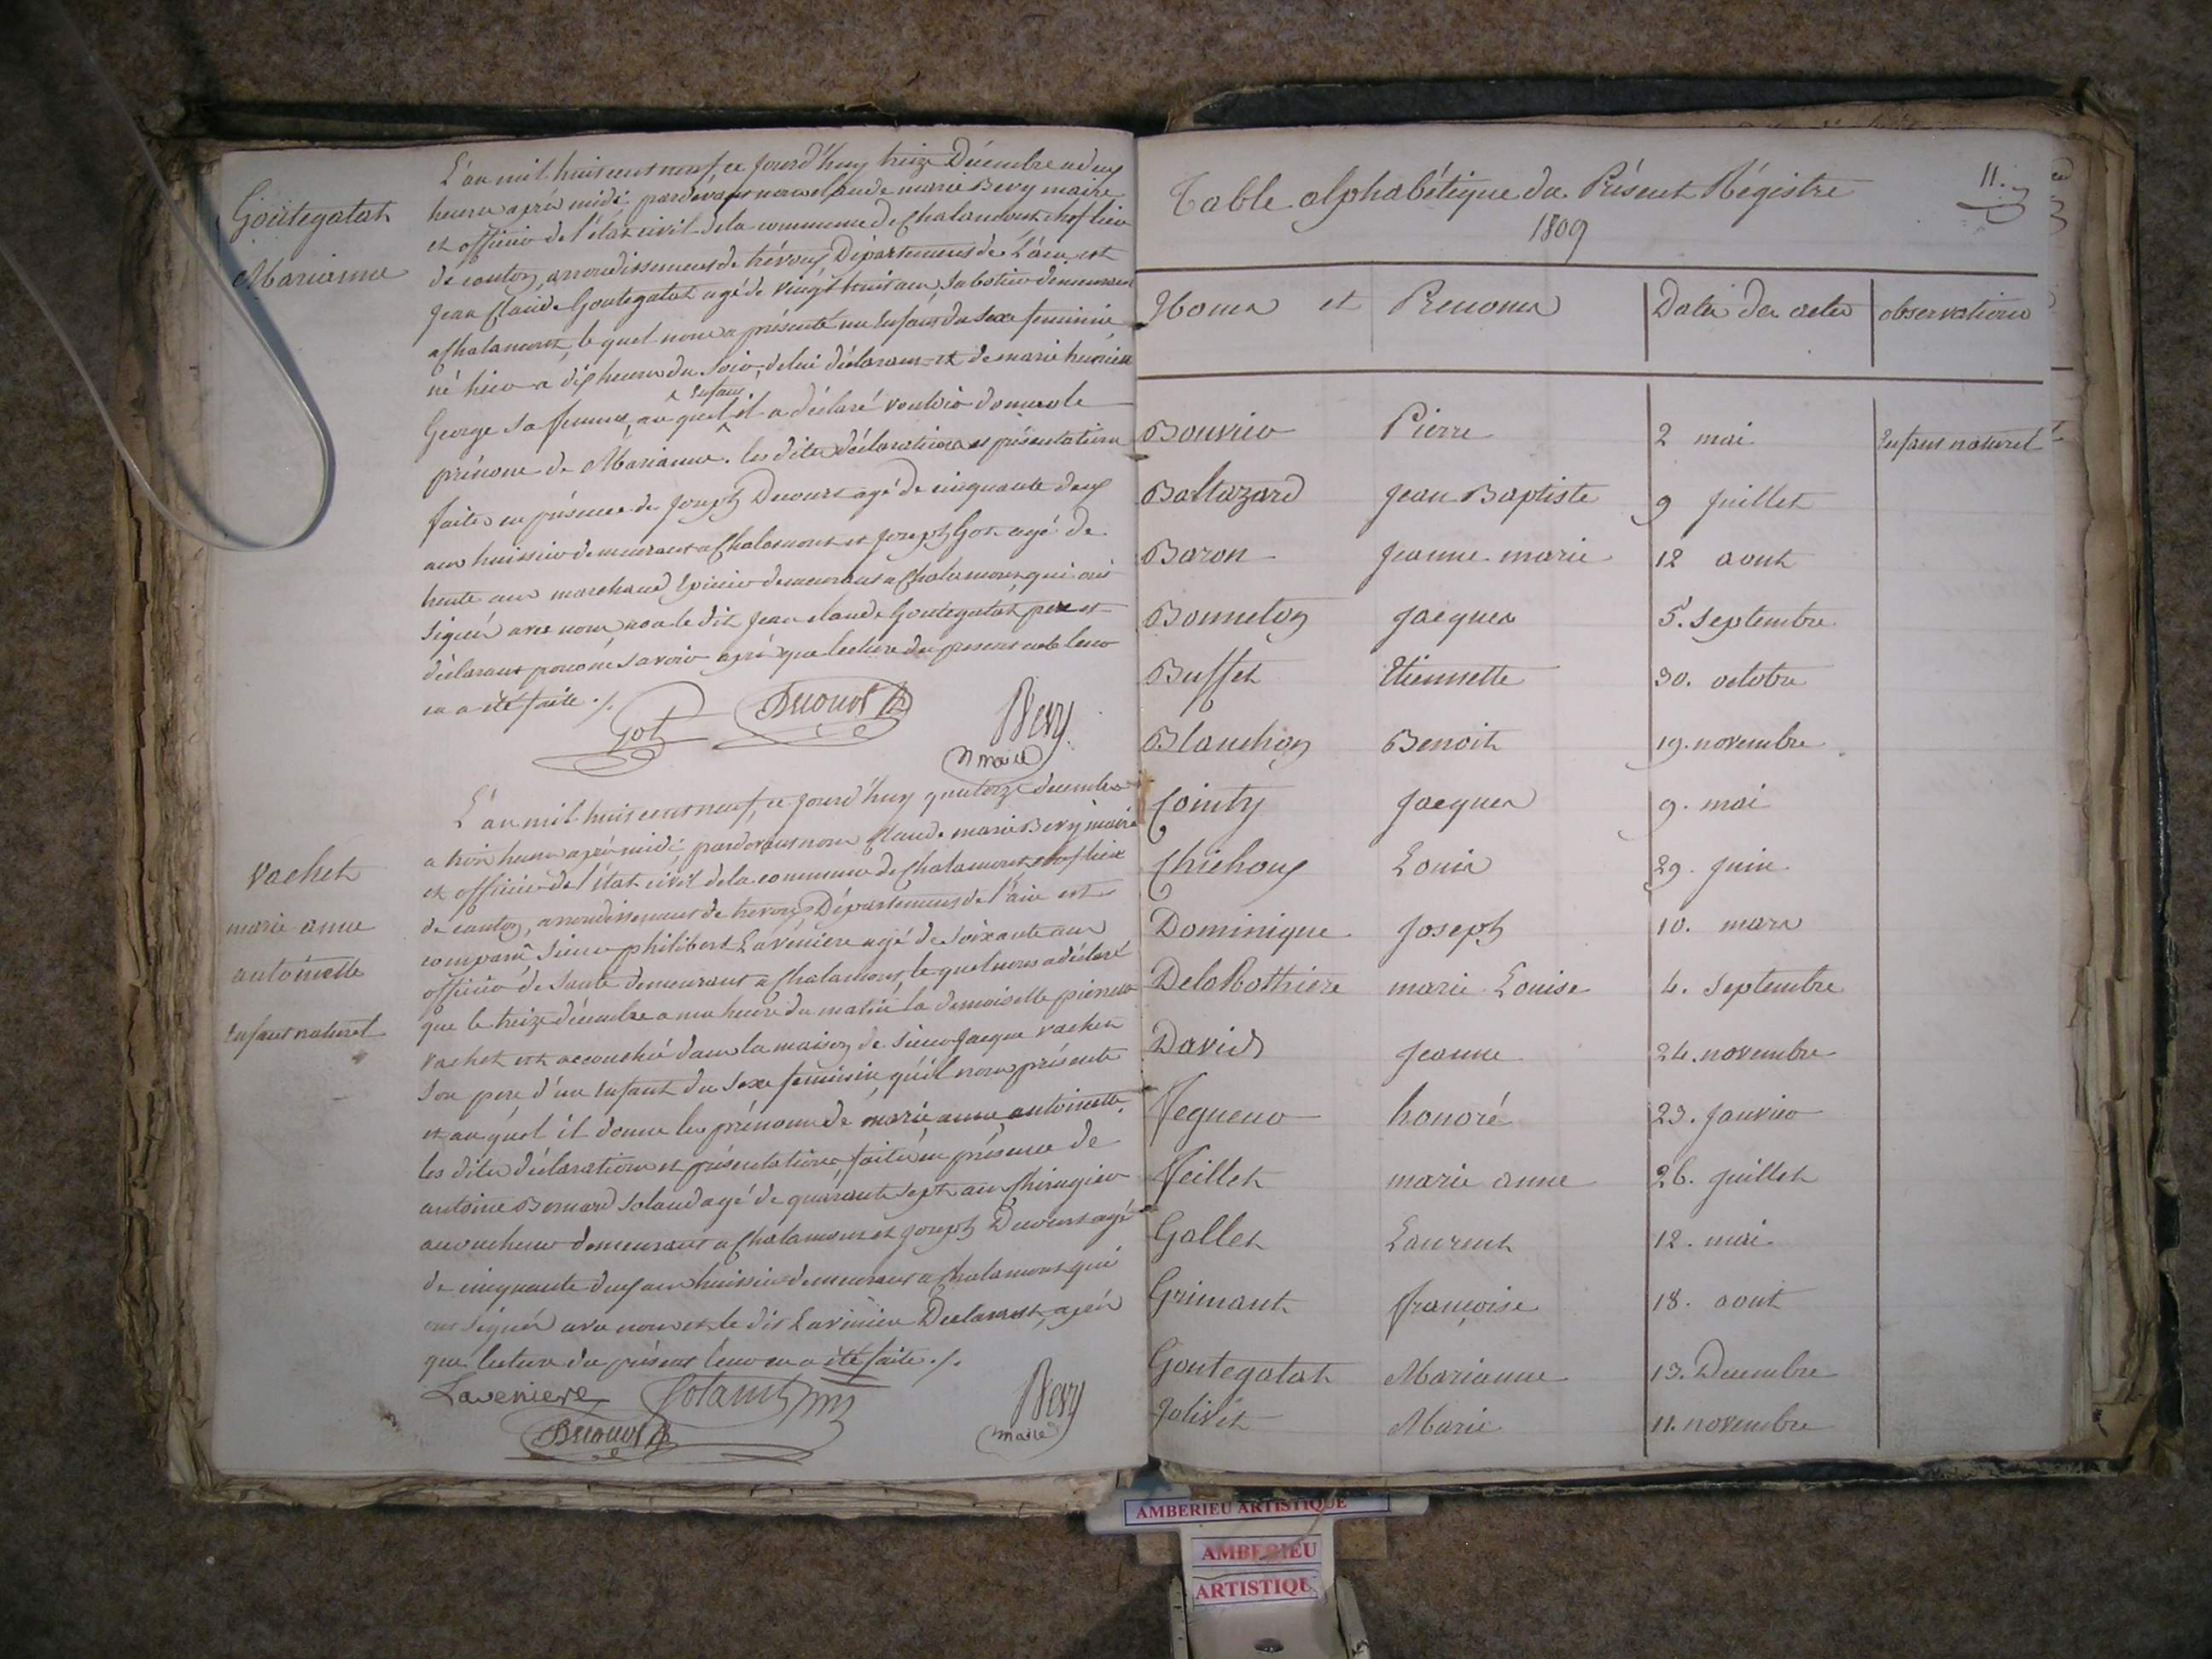 Goutegatat
Marianne
L'an mil huit cent neuf, ce jourd'huy treize Décembre a deux
heures après midi, pardevant nous claude marie Bevy maire
et officier de l'état civil de la commune de Chalamont chef lieu
de canton, arrondissement de trévoux Département de l'ain est
Jean Claude Goutegatat agé de vingt huit ans, sabotier demeurant
a Chalamont, le quel nous a présenté un Enfant du sexe feminin,
né hier a dix heures du soir, de lui déclarant et de marie
George sa femme, au quel Enfant il a déclaré vouloir donner le
prénom de Marianne. les dites déclaration et présentation
faites en présence de Joseph Decourt agé de cinquante deux
ans huissier demeurant a Chalamont et Joseph Got agé de
trente ans marchand Epicier demeurant a Chalamont, qui ont
signés avec nous, non le dit Jean claude Goutegatat pere et
déclarant pour ne savoir après que lecture du present acte leur
en a été faite ./.
Got Decourt Bevy
maire
Vachet
marie anne
antoinette
Enfant naturel
L'an mil huit cent neuf, ce jourd'huy quatorze decembre
a trois heures après midi, pardevant nous Claude marie Bevy maire
et officier de l'état civil de la commune de Chalamont chef lieu
de canton, arrondissement de trevoux, Département de l'ain est
comparû sieur philibert Laveniere agé de soixante ans
officier de santé demeurant a Chalamont, le quel nous a déclaré
que le treize décembre a une heure du matin la demoiselle pierrette
vachet est accouchée dans la maison de sieur Jacque vachet
son pere d'un Enfant du sexe feminin qu'il nous présente
et au quel il donne les prénoms de marie, anne, antoinette.
les dites déclaration et présentation faites en présence de
antoine Bernard Soland agé de quarante sept ans Chirugien
accoucheur demeurant a Chalamont et Joseph Decourt agé
de cinquante deux ans huissier demeurant a Chalamont qui
ont signés avec nous et le dit Laveniere Declarant, après
que lecture du présent leur en a été faite ./.
Laveniere Bevy
Decourt maire
Table alphabétique du Présent Régistre
11.
1809
Noms et Prenoms Date des actes observations
Bouvier Pierre 2 mai Enfant naturel
Baltazard Jean Baptiste 9 Juillet
Baron Jeanne marie 12 aout
Bonneton Jacques 5. Septembre
Buffet Etiennette 30. octobre
Blanchon Benoit 19. novembre
Cointy Jacques 9. mai
Chichoux Louis 29. Juin
Dominique Joseph 10. mars
Dela Rothiere marie Louise 4. Septembre
David Jeanne 24. novembre
honoré 23. Janvier
Feillet marie anne 26. Juillet
Gallet Laurent 12. mai
Grimaut françoise 18. aout
Goutegatat Marianne 13. Decembre
Jolivet Marie 11. novembre
AMBERIEU ARTISTIQUE
AMBERIEU
ARTISTIQU